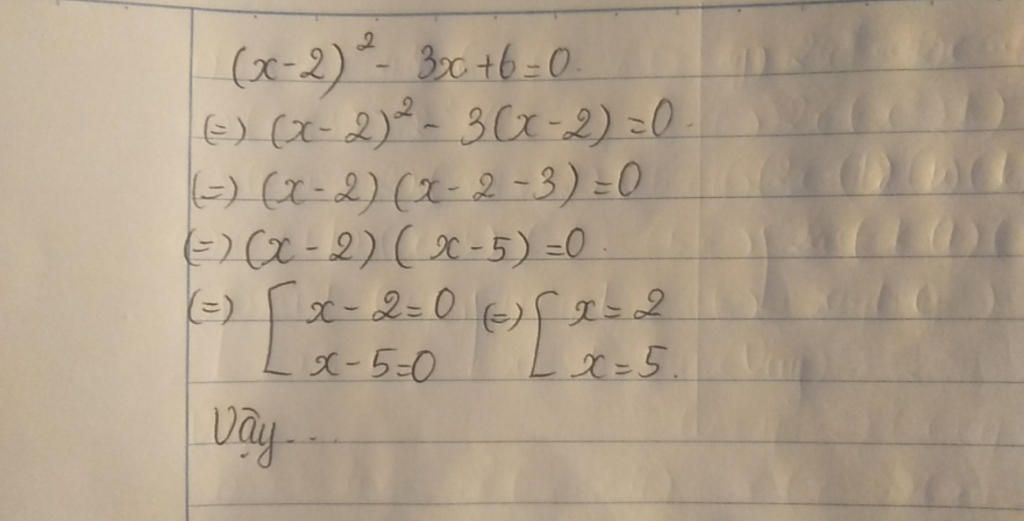 (x-2)² - 3x+6=0.
(=) (x-2)² - 3(x-2)=0.
(=) (x-2)(x-2-3)=0
(=) (x-2)(x-5)=0.
(=) [ x-2=0 (=) [ x=2
x-5=0 x=5.
Vậy...